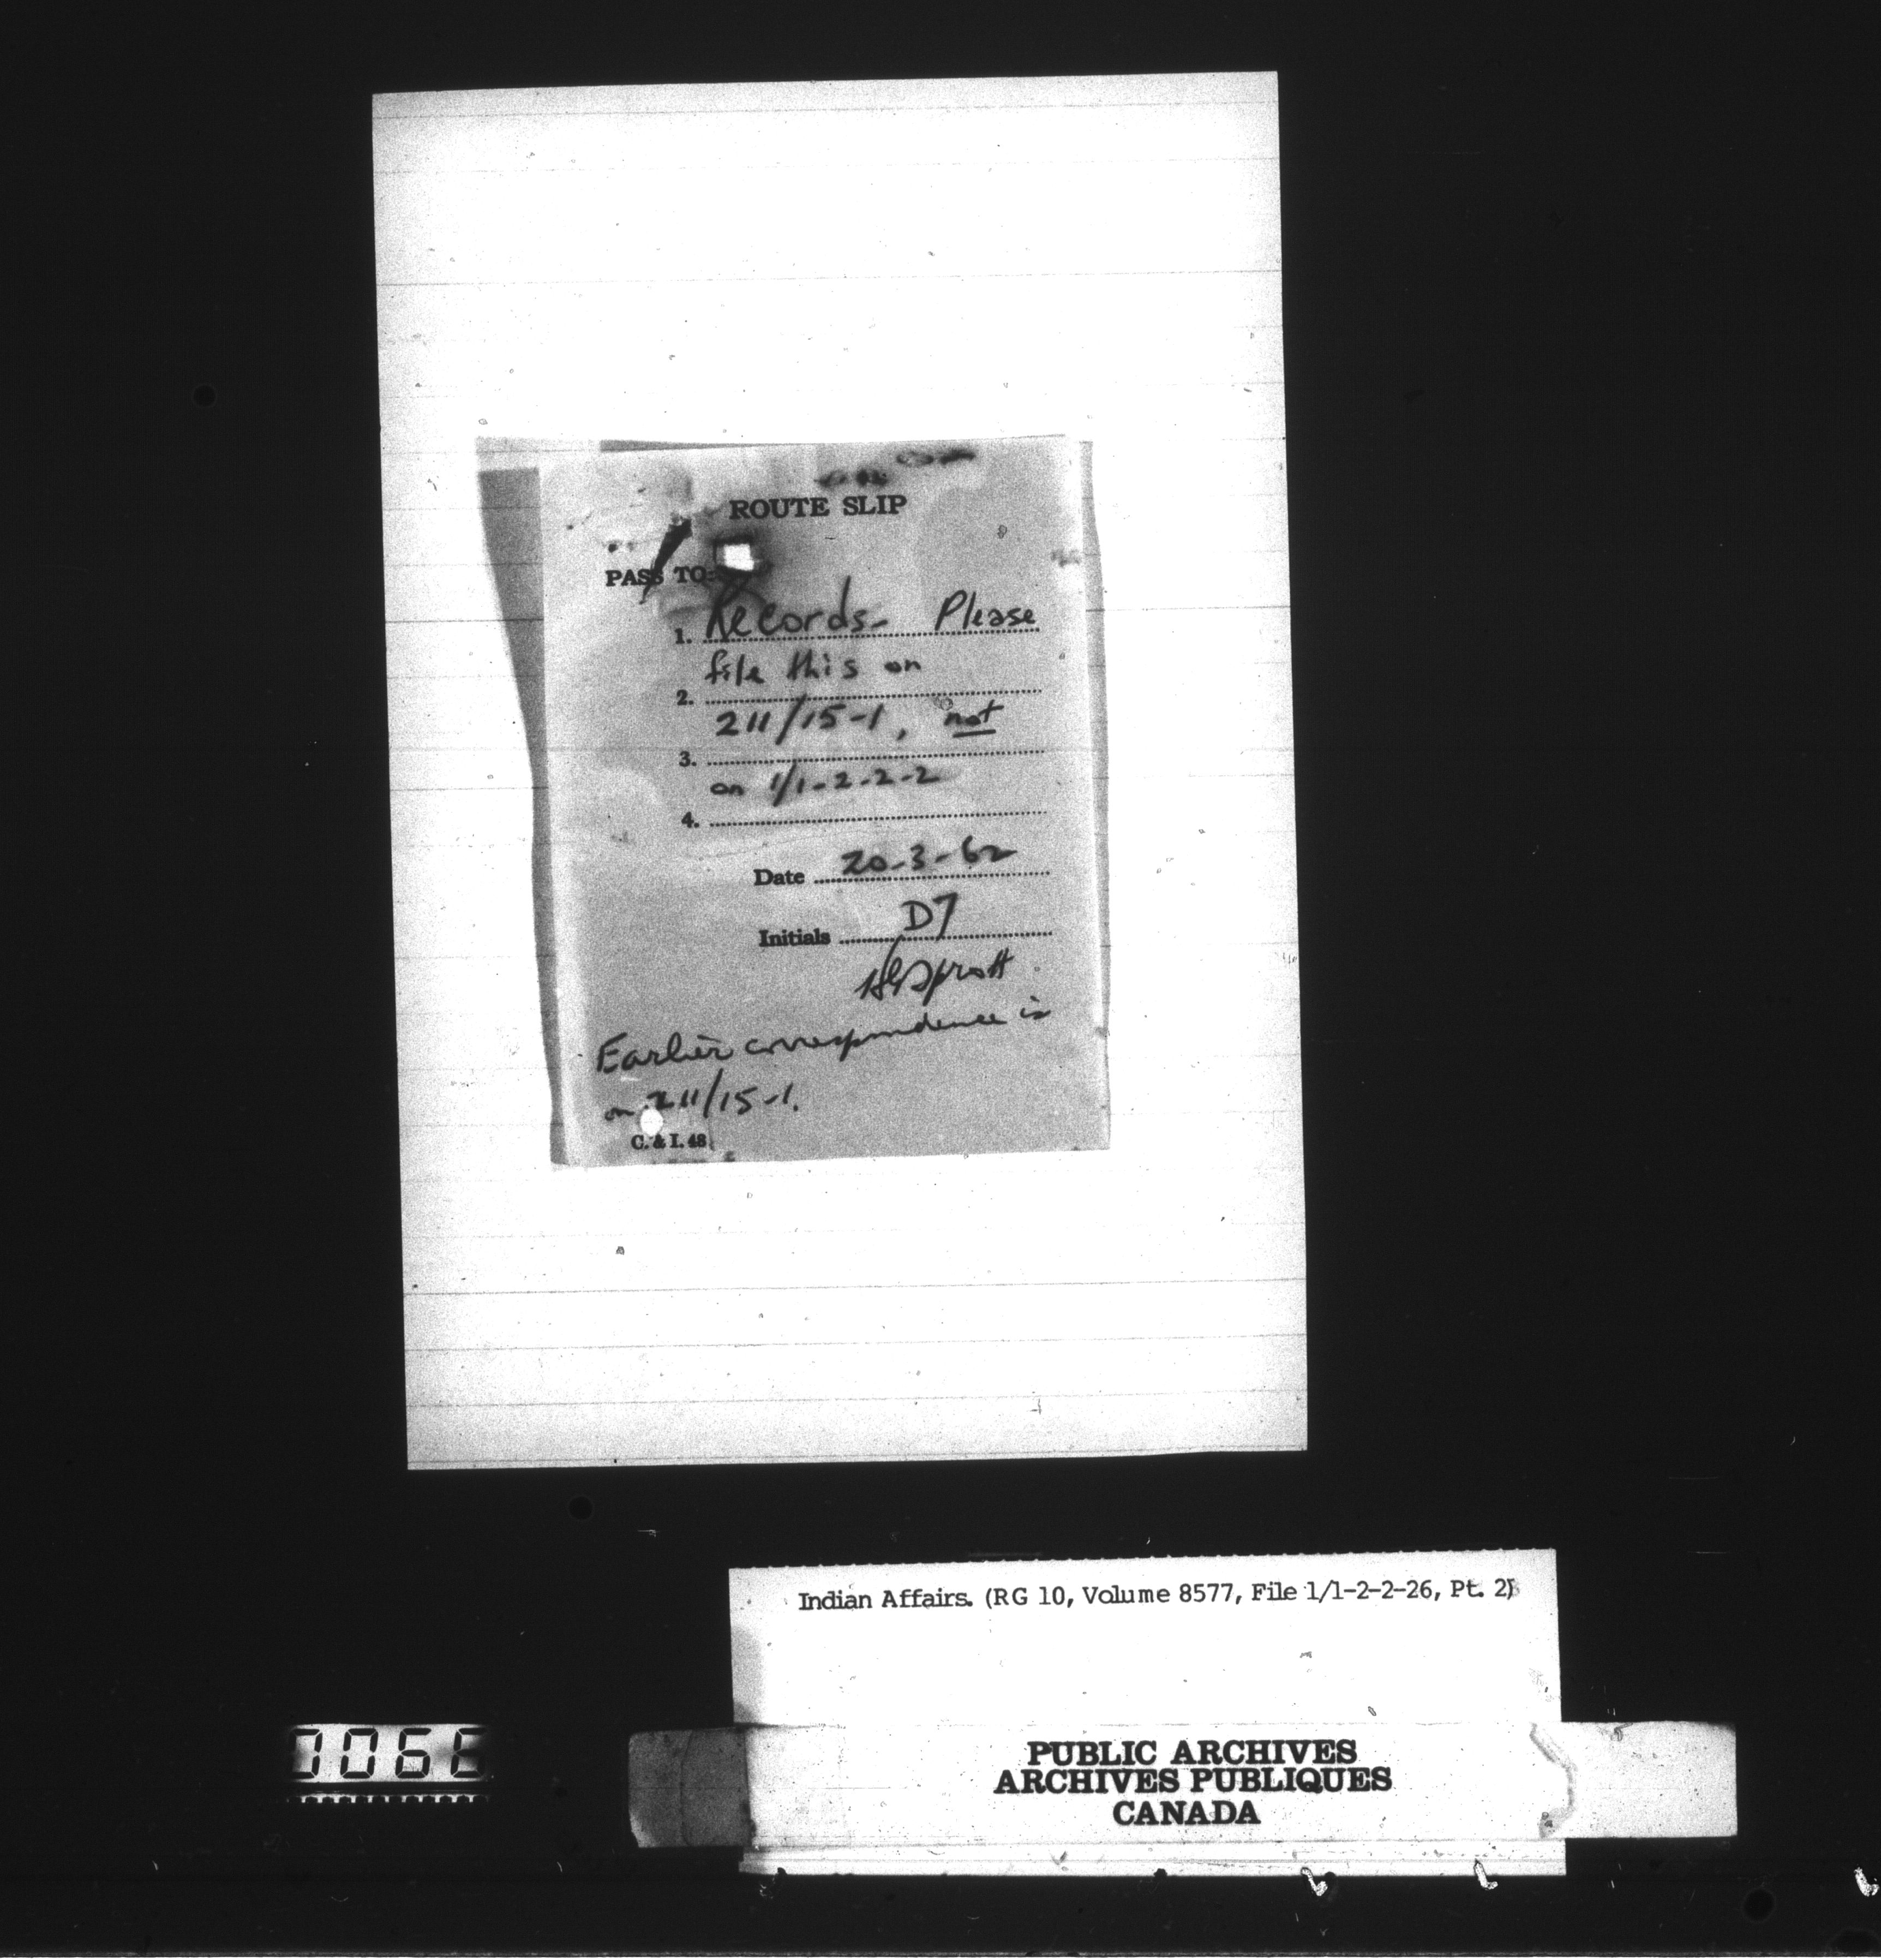 ROUTE SLIP
PASS TO:
1. Records - Please
file this on
2.
211/15-1, not
3.
on 1/1-2-2-2
4.
Date 20-3-62
Initials D7
Sprott
Earlier correspondence is
on 211/15-1.
C. & I. 48
Indian Affairs. (RG 10, Volume 8577, File 1/1-2-2-26, Pt. 2)
PUBLIC ARCHIVES
ARCHIVES PUBLIQUES
CANADA